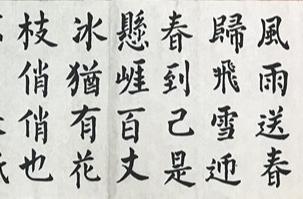 風雨送春
歸飛雪迎
春到己是
懸崕百丈
冰猶有花
枝俏俏也